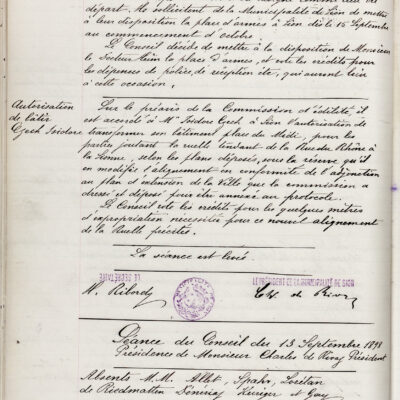 départ. Ils sollicitent de la Municipalité de Sion de mettre
à leur disposition la place d'armes à Sion dès le 15 Septembre
au commencement d'octobre.
Le Conseil décide de mettre à la disposition de Monsieur
le Docteur la place d'armes, et vote les crédits pour
les dépenses de police, de réception etc, qui auront lieu
à cette occasion.
Autorisation
de bâtir
Czech Isidore
Sur le préavis de la Commission d'édilité, il
est accordé à Mr Isidore Czech à Sion l'autorisation de
transformer son bâtiment place du Midi, pour les
parties joutant la ruelle tendant de la Rue du Rhône à
la Sionne, selon les plans déposés, sous la réserve qu'il
en modifie l'alignement en conformité de l'adjonction
au plan d'extension de la Ville que la commission a
dressé et déposé pour être annexé au protocole.
Le Conseil vote les crédits pour les quelques mètres
d'expropriation nécessités pour ce nouvel alignement
de la Ruelle précitée.
La séance est levée.
LE SECRÉTAIRE
LE PRÉSIDENT DE LA MUNICIPALITÉ DE SION
W. Ribordy
Ch. de Rivaz
Séance du Conseil des 13 Septembre 1898
Présidence de Monsieur Charles de Rivaz Président
Absents M.M. Allet, Spahr, Lorétan
de Riedmatten Dénériaz Kuriger et Gay